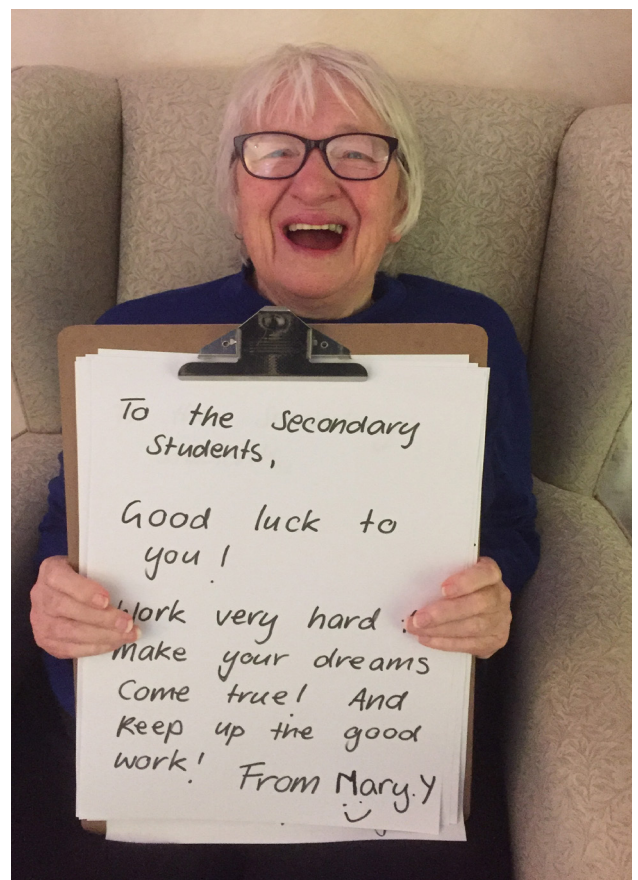 To the secondary
Students,
Good luck to
you!
Work very hard
make your dreams
Come true! And
Keep up the good
work!
From Mary.Y